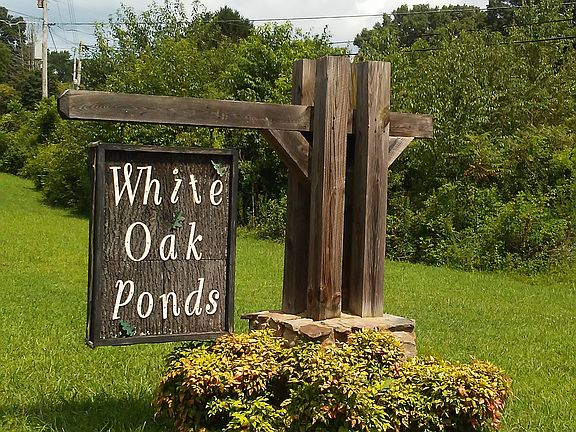 White
Oak
Ponds